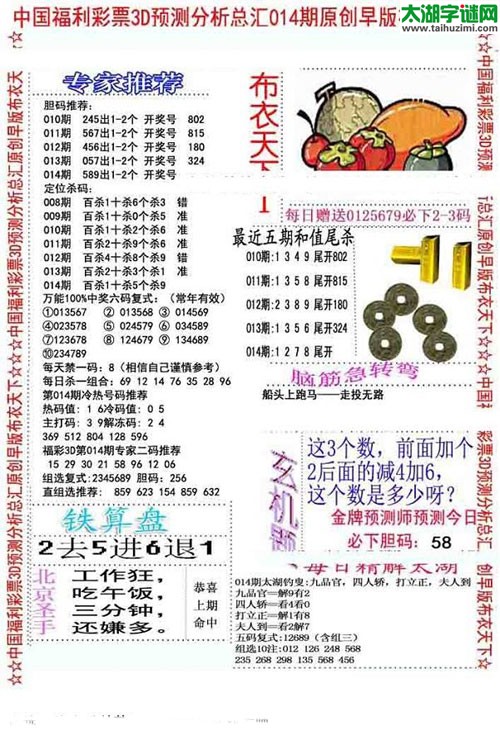 中国福利彩票3D预测分析总汇014期原创早版
太湖字谜网
www.taihuzimi.com
专家推荐
胆码推荐:
010期 245出1-2个 开奖号 802
011期 567出1-2个 开奖号 815
012期 456出1-2个 开奖号 180
013期 057出1-2个 开奖号 324
014期 589出1-2个 开奖号
定位杀码:
008期 百杀1十杀6个杀3 错
009期 百杀1十杀0个杀5 准
010期 百杀1十杀9个杀0 准
011期 百杀1十杀5个杀5 错
012期 百杀9十杀1个杀5 准
013期 百杀2十杀3个杀1 准
014期 百杀1十杀5个杀9
万能100%中奖六码复式: (常年有效)
①013567 ②013568 ③014569
④023578 ⑤024579 ⑥034589
⑦123678 ⑧124679 ⑨134689
⑩234789
每天禁一码: 8 (相信自己谨慎参考)
每日杀一组合: 69 12 14 76 35 28 96
第014期冷热号码推荐
热码值: 1 6冷码值: 0 5
主打码: 3 9解冻码: 2 4
369 512 804 128 596
福彩3D第014期专家二码推荐
15 29 30 21 58 96 12 06
组选复式: 2345689 胆码: 256
直组选推荐: 859 623 154 859 632
铁算盘
2去5进6退1
北京圣手
工作狂,
吃午饭,
三分钟,
还嫌多。
恭喜
上期
命中
布衣天下
每日赠送0125679必下2-3码
最近五期和值尾杀
010期:1 3 4 9 尾开802
011期:1 3 5 8 尾开815
012期:2 3 8 9 尾开180
013期:1 3 5 6 尾开324
014期:1 2 7 8 尾开
脑筋急转弯
船头上跑马——走投无路
玄机题
这3个数,前面加个
2后面的减4加6,
这个数是多少呀?
金牌预测师预测今日
必下胆码: 58
每日精解太湖
014期太湖钓叟:九品官, 四人轿, 打立正, 夫人到
九品官=解9有2
四人轿=看4看0
打立正=解1有8
夫人到=看2解7
五码复式:12689 (含组三)
组选10注:012 126 248 568
235 268 298 135 568 456
☆☆中国福利彩票3D预测分析总汇原创早版布衣天下☆☆☆中国福利彩票3D预测分析总汇原创早版布衣天